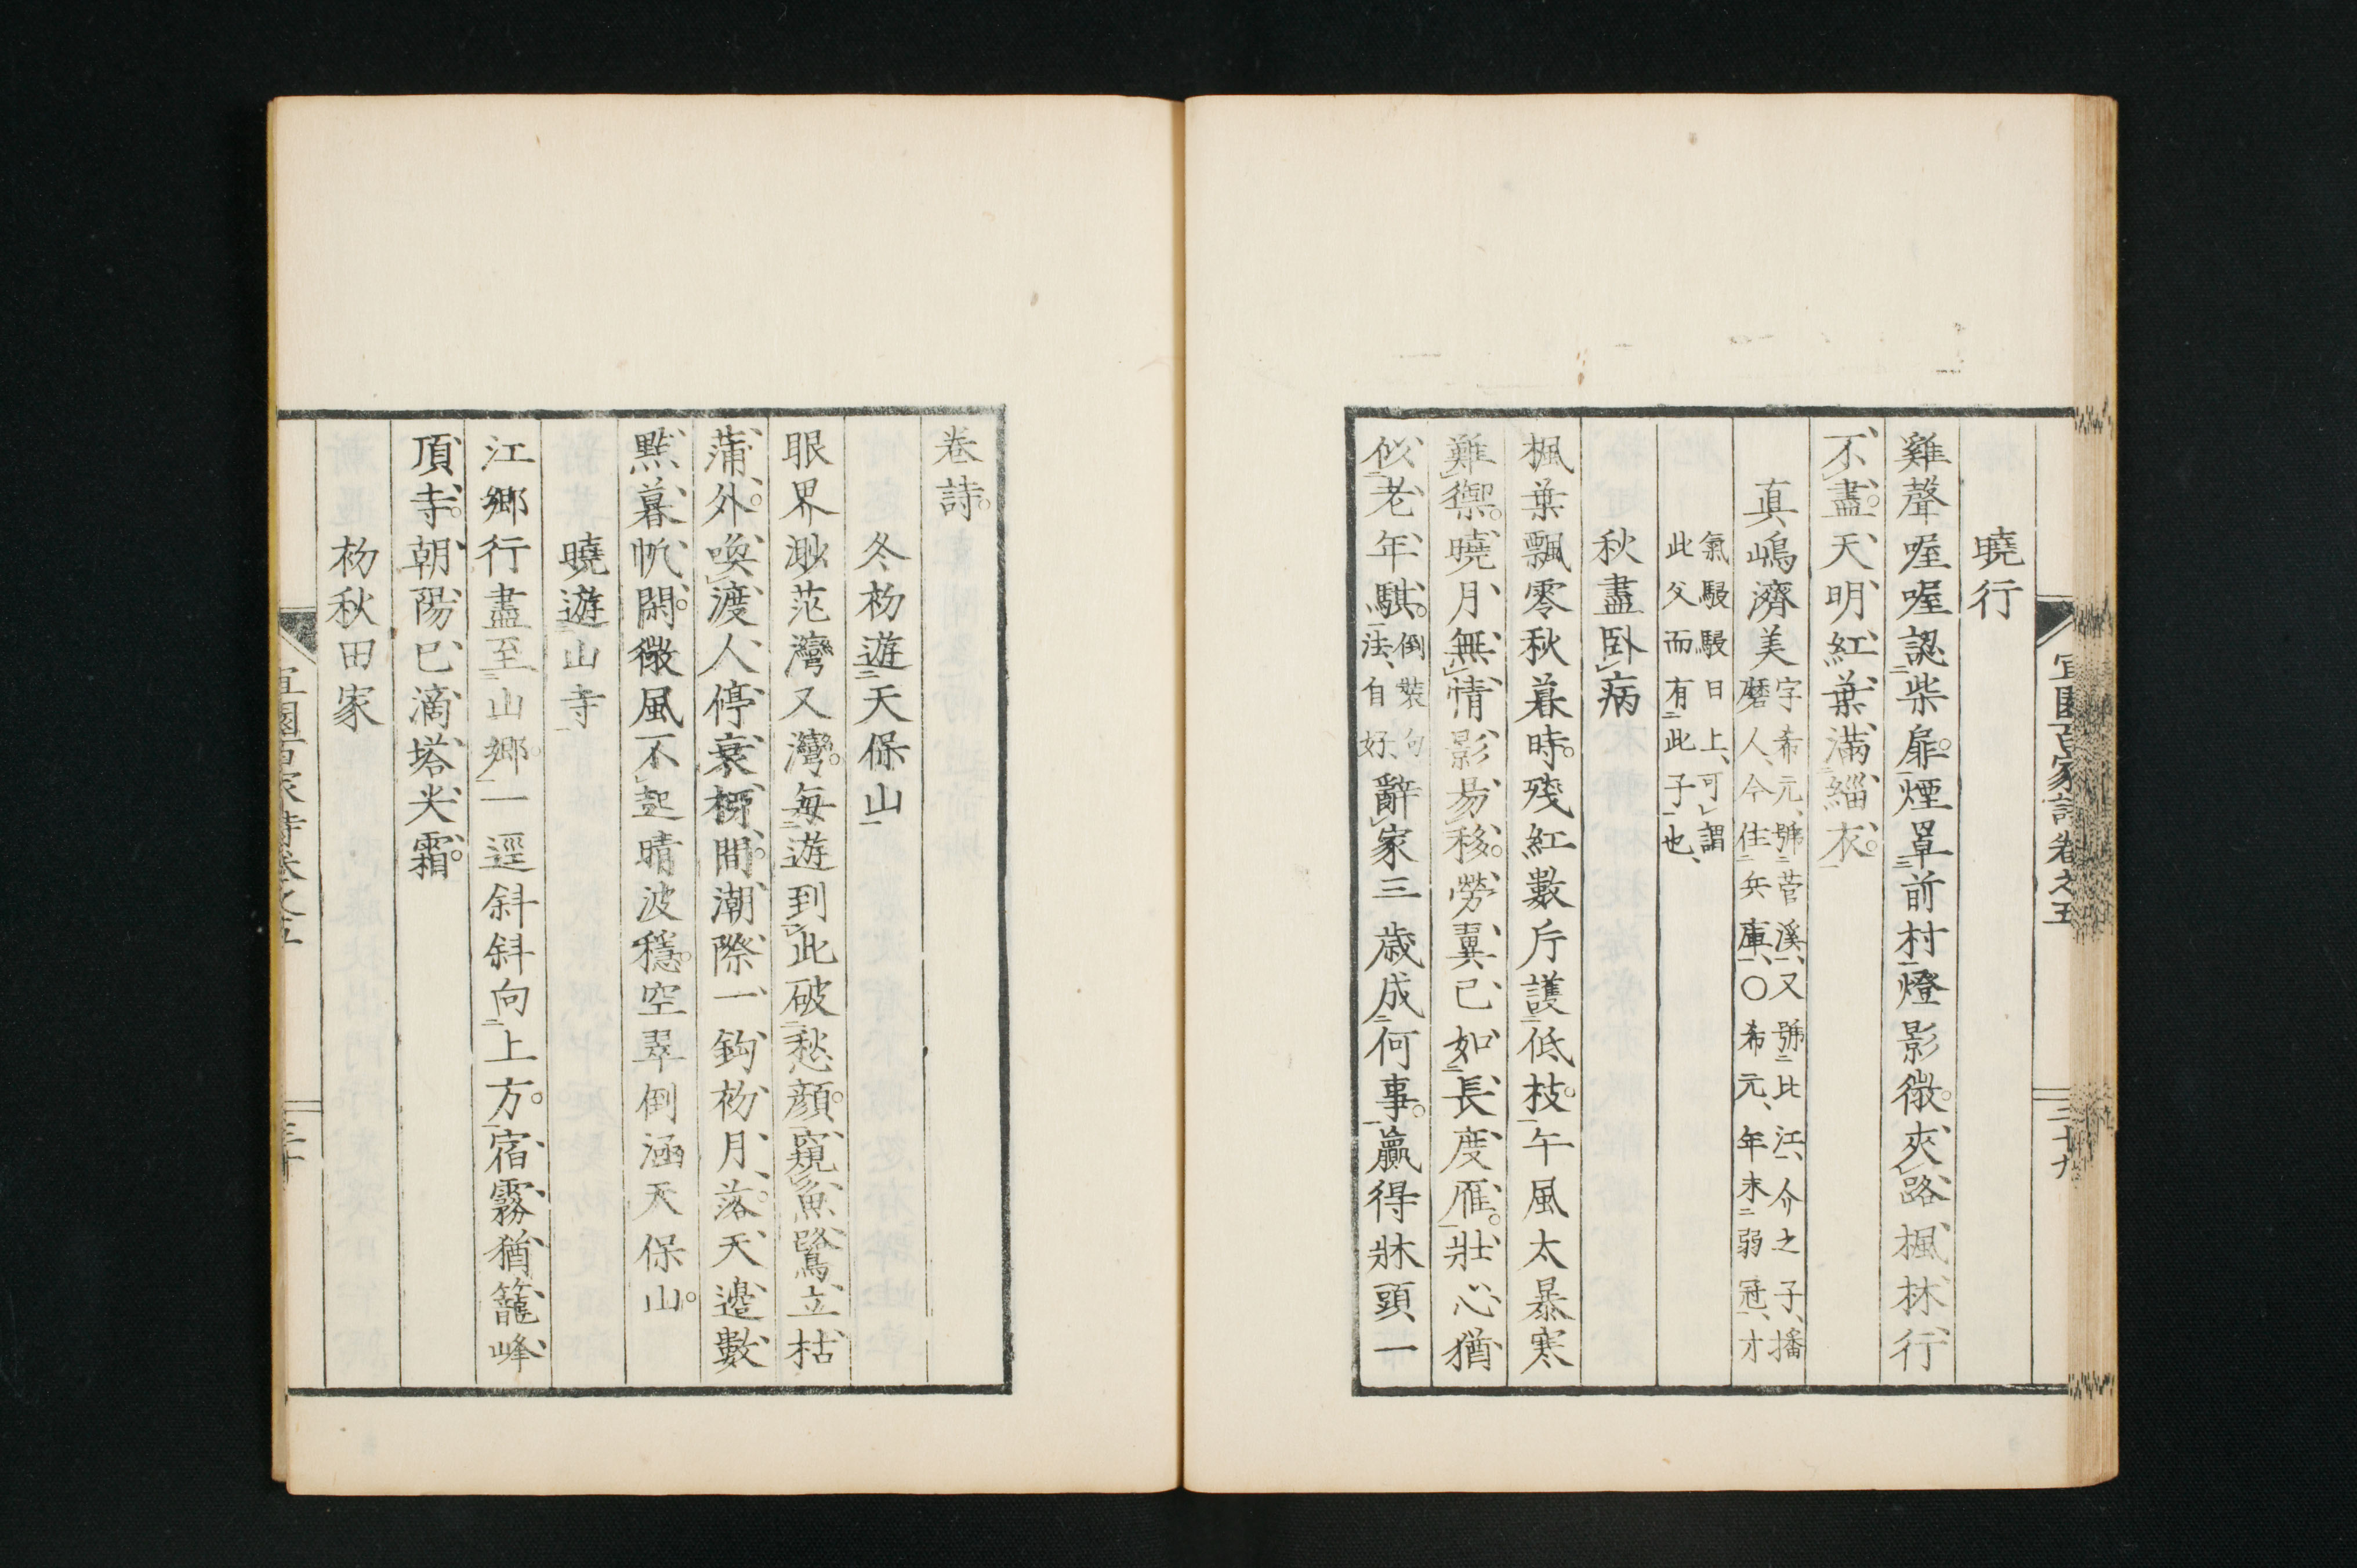 宜園百家詩卷之五
二十九
曉行
雞聲喔喔認柴扉。煙罩前村燈影微。夾路楓林行
不盡。天明紅葉滿緇衣。
真嶋濟美字希元、號菅溪、又號比江、介之子、播
磨人、今住兵庫、〇希元、年未弱冠、才
氣駸駸日上、可謂
此父而有此子也、
秋盡臥病
楓葉飄零秋暮時。殘紅數斤護低枝。午風太暴寒
難禦。曉月無情影易移。勞冀已如長度雁。壯心猶
似老年騏。倒裝句法、自好、辭家三歲成何事。贏得牀頭一
卷詩。
冬初遊天保山
眼界渺茫灣又灣。每遊到此破愁顏。窺魚鷺立枯
蒲外。喚渡人停衰柳間。潮際一鉤初月落。天邊數
點暮帆閑。微風不起晴波穩。空翠倒涵天保山。
曉遊山寺
江鄉行盡至山鄉。一逕斜斜向上方。宿霧猶籠峰
頂寺。朝陽已滴塔尖霜。
初秋田家
宜園百家詩卷之五
三十